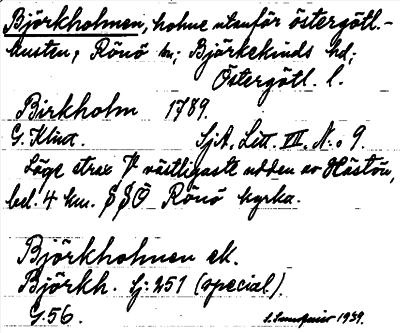 Björkholmen, holme utanför östergötl.-
kusten, Rönö sn; Björkekinds hd;
Östergötl. l.
Birkholm 1789.
G. Klint. SjA, Litt. III, N:o 9
Läge strax V västligaste udden av Hästön,
bel. 4 km. SSÖ Rönö kyrka.
Björkholmen ek.
Björkh. Lj: 251 (special).
G.56. 1939.